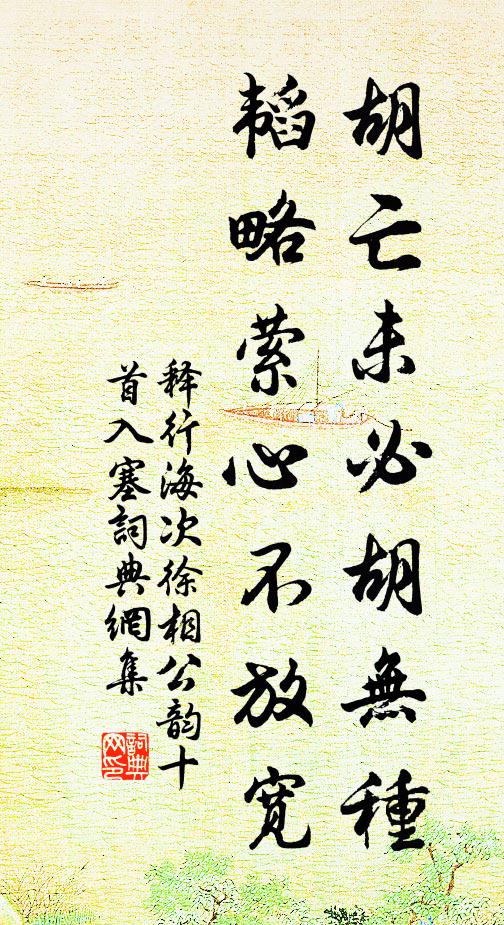 胡亡未必胡無種
韬略萦心不放寬
释行海次徐相公韵十
首入塞詞典網集
詞典
网印